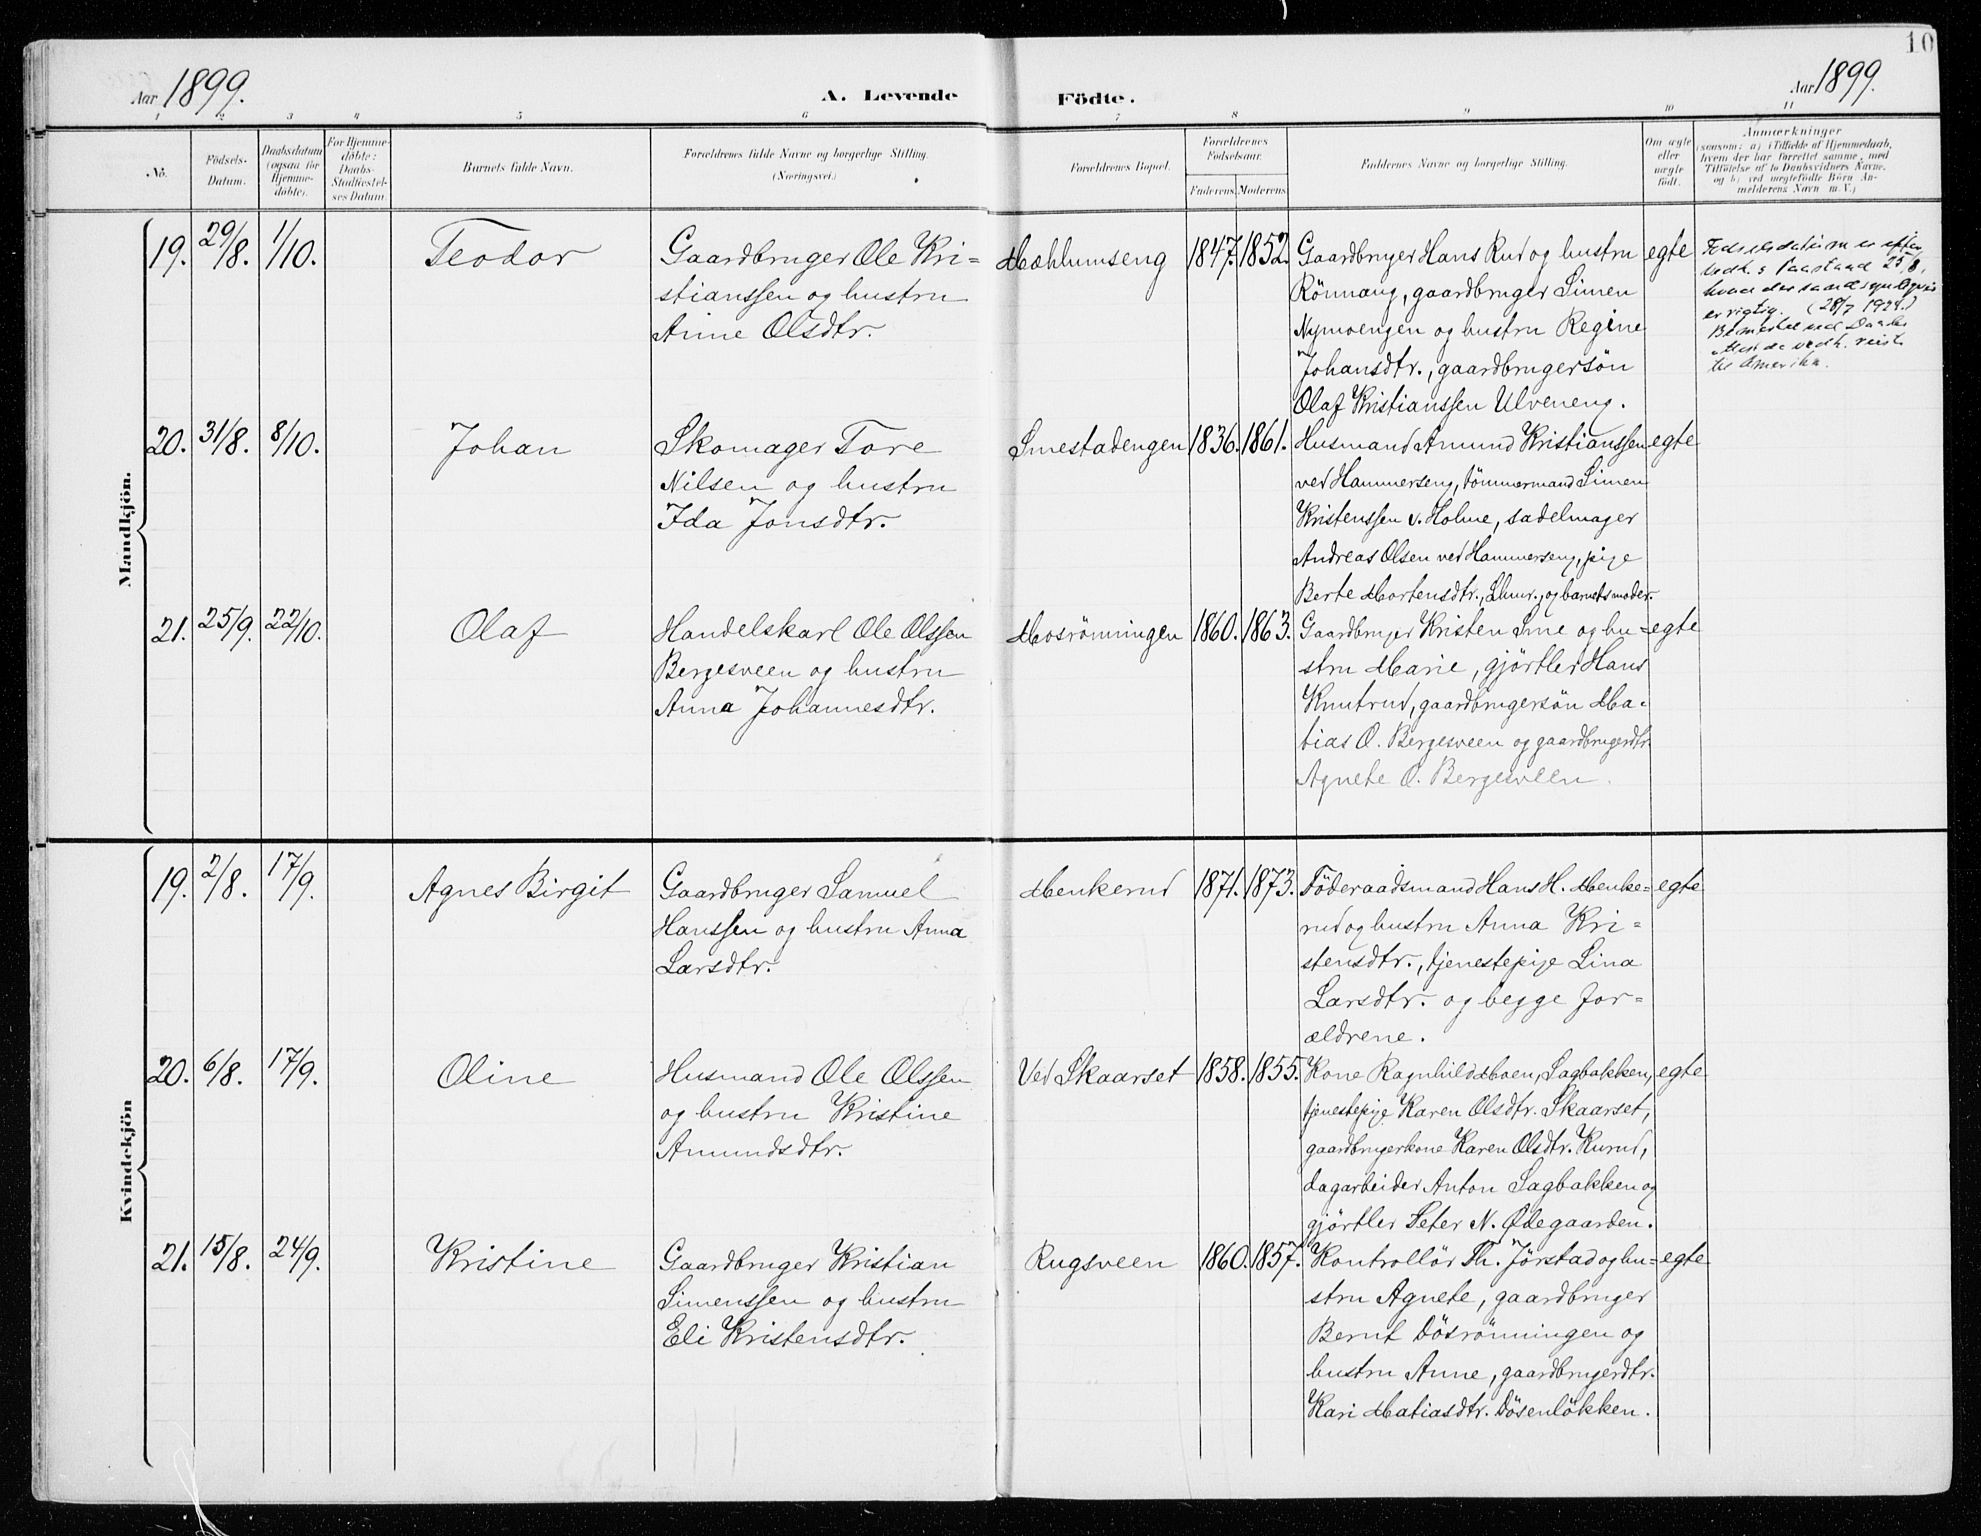 10
Aar 1899.
A. Levende Födte.
Aar 1899.
1 2 3 4 5 6 7 8 9 10 11
No.
Födsels-Datum.
Daabsdatum (ogsaa for Hjemme-döbte).
For Hjemme-döbte: Daabs-Stadfæstel-ses Datum
Barnets fulde Navn.
Forældrenes fulde Navne og borgerlige Stilling.
(Næringsvei.)
Forældrenes Bopæl.
Forældrenes Födselsaar.
Faderens. Moderens.
Faddernes Navne og borgerlige Stilling.
Om ægte eller uægte født.
Anmærkninger
(saasom: a) i Tilfælde af Hjemmedaab,
hvem der har forrettet samme, med
Tilföielse af to Daabsvidners Navne.
og b) ved uægtefödte Börn An-
melderens Navn m. V.)
Mandkjön.
19. 29/8. 1/10. Teodor
Gaardbruger Ole Kri-
stianssen og hustru
Anne Olsdtr.
Mæhlumseng 1847. 1852.
Gaardbruger Hans Rud og hustru
Rönnaug, gaardbruger Simen
Nymoengen og hustru Regine
Johansdtr., gaardbrugersön
Olaf Kristianssen Ulveneng.
egte
Fødselsdatum er efter
vedk.s Paastand 25/8,
hvad der sandsynligvis
er rigtig. (28/7 1924.)
vedk. reist
til Amerika.
20. 31/8. 8/10. Johan
Skomager Tore
Nilsen og hustru
Ida Jonsdtr.
Smestadengen 1836. 1861.
Husmand Amund Kristianssen
ved Hammerseng, tömmermand Simen
Kristenssen v. Holme, sadelmager
Andreas Olsen ved Hammerseng, pige
Berte Mortensdtr., og barnets moder.
egte
21. 25/9. 22/10. Olaf
Handelskarl Ole Olssen
Bergesveen og hustru
Anna Johannesdtr.
Mosrönningen 1860. 1863.
Gaardbruger Kristen Sme og hu-
stru Marie, gjörtler Hans
Knutrud, gaardbrugersön Ma-
tias O. Bergesveen og gaardbrugerdtr.
Agnete O. Bergesveen.
egte
Kvindekjön
19. 2/8. 17/9. Agnes Birgit
Gaardbruger Samuel
Hanssen og hustru Anna
Larsdtr.
Menkerud 1871. 1873.
Föderaadsmand Hans H. Menke-
rud og hustru Anna Kri-
stensdtr., tjenestepige Lina
Larsdtr. og begge for-
ældrene.
egte
20. 6/8. 17/9. Oline
Husmand Ole Olssen
og hustru Kristine
Amundsdtr.
Ved Skaarset 1858. 1855.
Kone Ragnhild Moen, Sagbakken,
tjenestepige Karen Olsdtr. Skaarset,
gaardbrugerkone Karen Olsdtr. Kurud,
dagarbeider Anton Sagbakken og
gjörtler Peter N. Ödegaarden.
egte
21. 15/8. 24/9. Kristine
Gaardbruger Kristian
Simenssen og hustru
Eli Kristensdtr.
Rugsveen 1860. 1857.
Kontrollör Th. Jörstad og hu-
stru Agnete, gaardbruger
Bernt Dösrönningen og
hustru Anne, gaardbrugerdtr.
Kari Matiasdtr. Dösenlökken.
egte